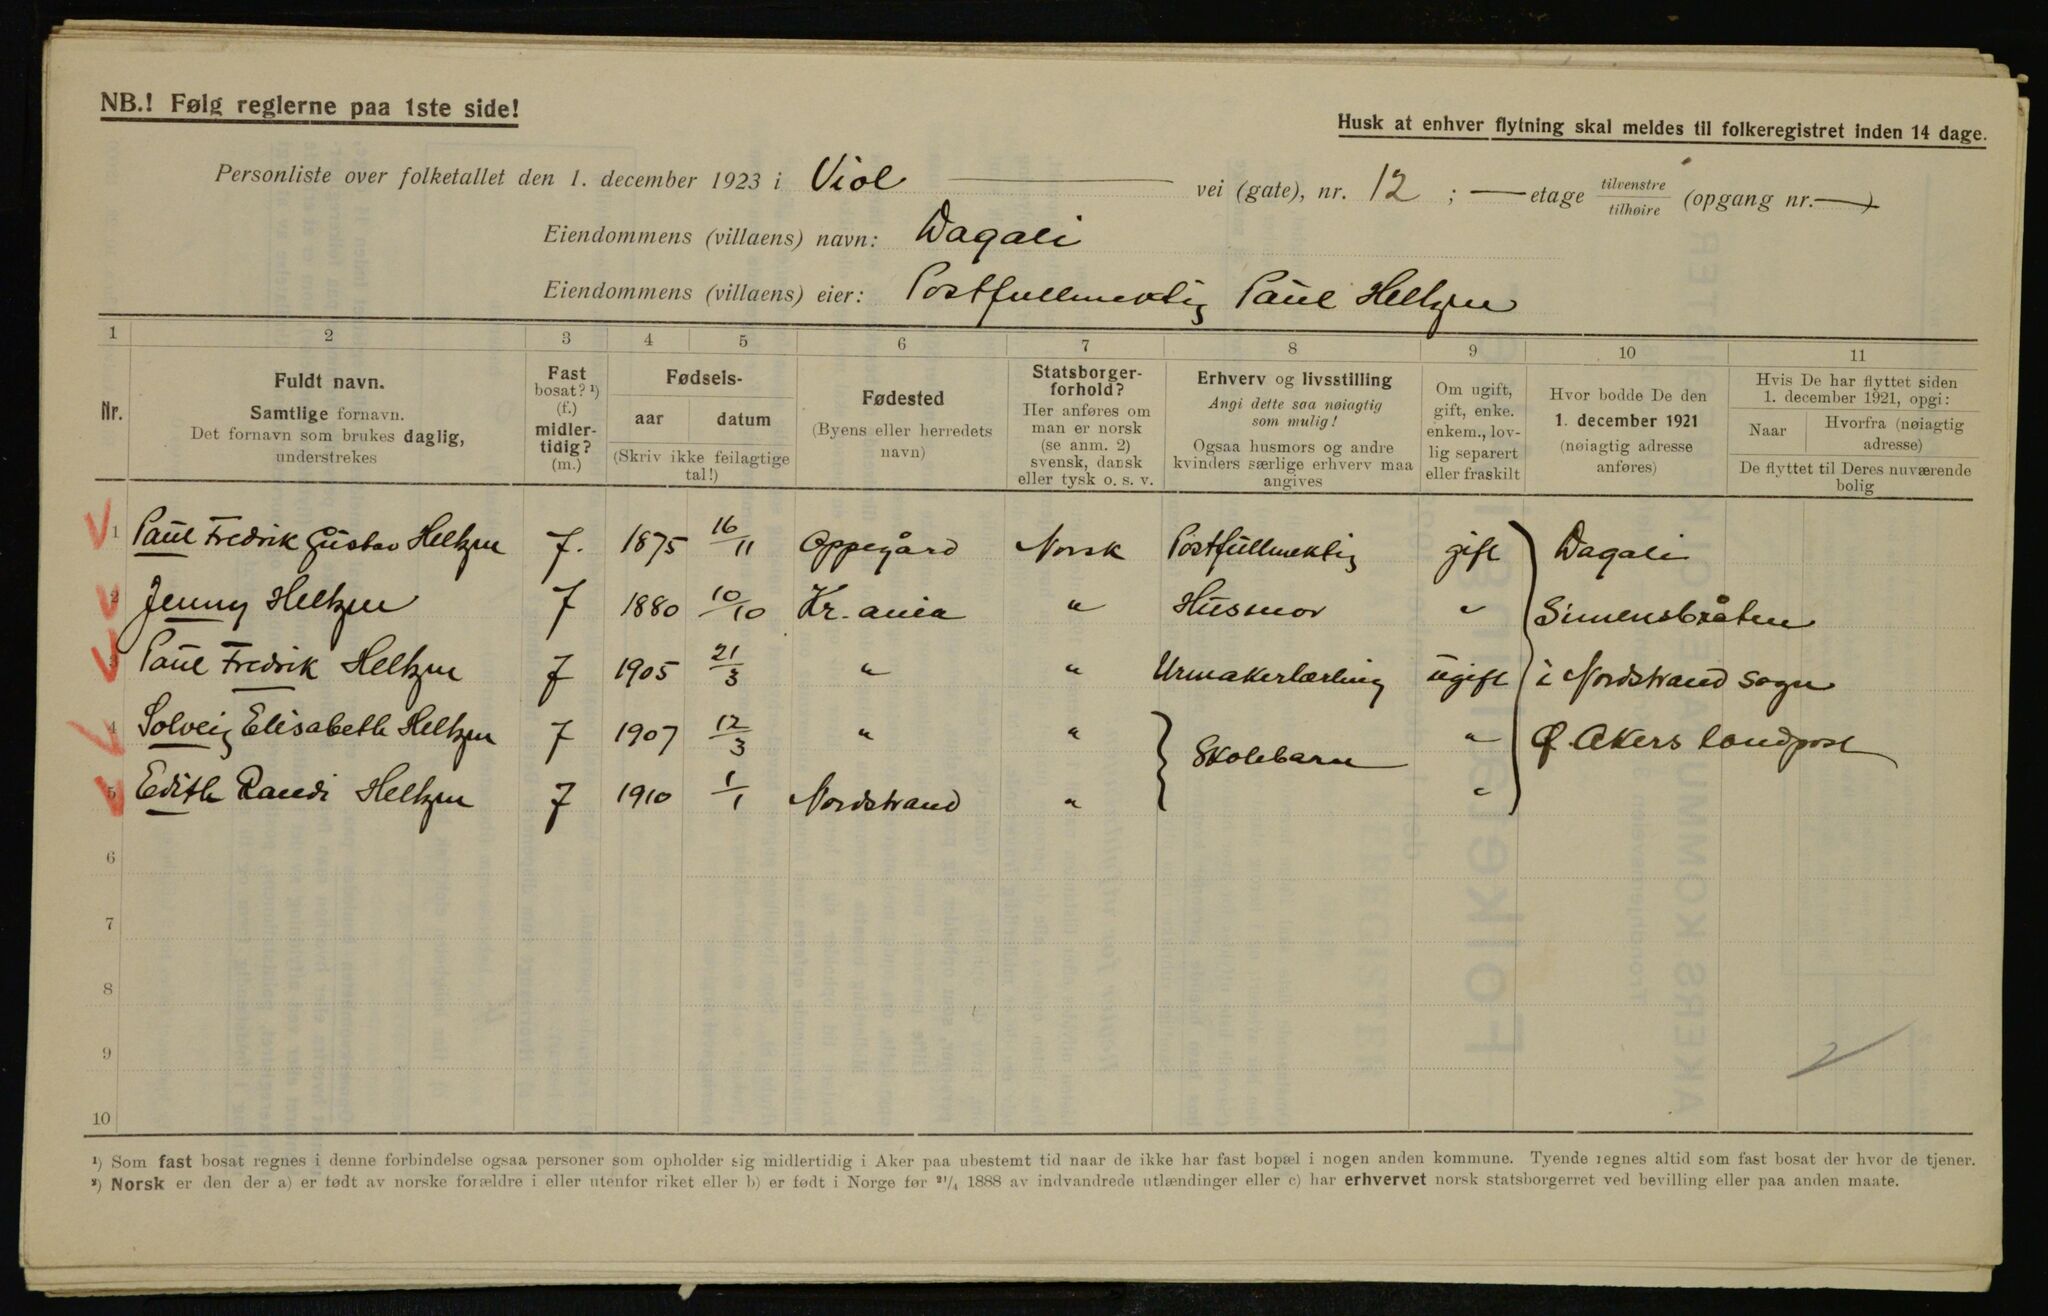 NB.! Følg reglerne paa 1ste side!
Husk at enhver flytning skal meldes til folkeregistret inden 14 dage.
Personliste over folketallet den 1. december 1923 i Viol — vei (gate), nr. 12 ; — etage tilvenstre / tilhøire (opgang nr. —)
Eiendommens (villaens) navn: Dagali
Eiendommens (villaens) eier: Postfullmektig Paul Heltzen
1 2 3 4 5 6 7 8 9 10 11
Nr. | Fuldt navn. Samtlige fornavn. Det fornavn som brukes daglig, understrekes | Fast bosat? ¹) (f.) midlertidig? (m.) | Fødsels- aar datum (Skriv ikke feilagtige tal!) | Fødested (Byens eller herredets navn) | Statsborgerforhold? Her anføres om man er norsk (se anm. 2) svensk, dansk eller tysk o. s. v. | Erhverv og livsstilling Angi dette saa nøiagtig som mulig! Ogsaa husmors og andre kvinders særlige erhverv maa angives | Om ugift, gift, enke. enkem., lovlig separert eller fraskilt | Hvor bodde De den 1. december 1921 (nøiagtig adresse anføres) | Hvis De har flyttet siden 1. december 1921, opgi: Naar Hvorfra (nøiagtig adresse) De flyttet til Deres nuværende bolig
1 Paul Fredrik Gustav Heltzen f. 1875 16/11 Oppegård Norsk Postfullmektig gift Dagali
2 Jenny Heltzen f 1880 10/10 Kr.ania " Husmor " Simensbråten
3 Paul Fredrik Heltzen f 1905 21/3 " " Urmakerlærling ugift i Nordstrand sogn
4 Solveig Elisabeth Heltzen f 1907 12/3 " " Skolebarn " Ø. Akers landpost
5 Edith Randi Heltzen f 1910 1/1 Nordstrand " "
6
7
8
9
10
¹) Som fast bosat regnes i denne forbindelse ogsaa personer som opholder sig midlertidig i Aker paa ubestemt tid naar de ikke har fast bopæl i nogen anden kommune. Tyende regnes altid som fast bosat der hvor de tjener.
²) Norsk er den der a) er født av norske forældre i eller utenfor riket eller b) er født i Norge før 21/4 1888 av indvandrede utlændinger eller c) har erhvervet norsk statsborgerret ved bevilling eller paa anden maate.